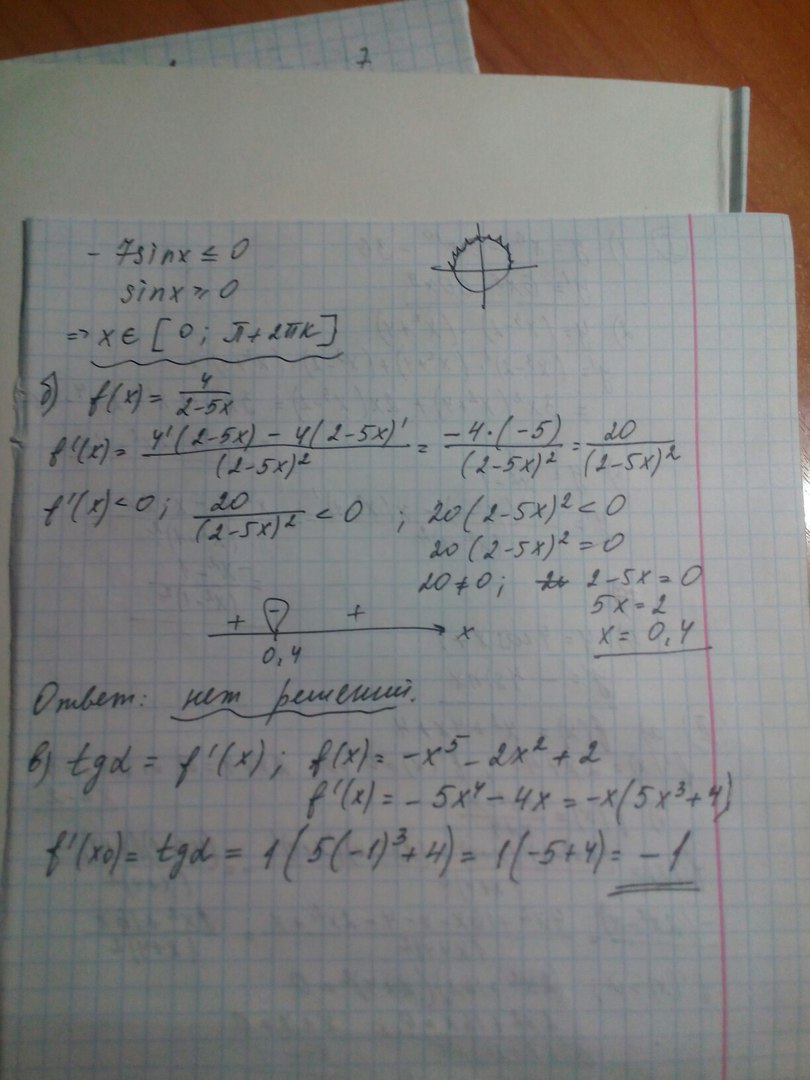 7
- 7sinx ≤ 0
sinx ≥ 0
=> x ∈ [0; π+2πk]
б) f(x) = 4/(2-5x)
f'(x) = (4'(2-5x) - 4(2-5x)')/(2-5x)² = (-4·(-5))/(2-5x)² = 20/(2-5x)²
f'(x) < 0; 20/(2-5x)² < 0 ; 20(2-5x)² < 0
20(2-5x)² = 0
20 ≠ 0; 2-5x = 0
5x = 2
+ - + x
x = 0,4
0,4
Ответ: нет решений.
в) tgα = f'(x); f(x) = -x⁵ - 2x² + 2
f'(x) = - 5x⁴ - 4x = -x(5x³+4)
f'(x0) = tgα = 1(5(-1)³+4) = 1(-5+4) = -1